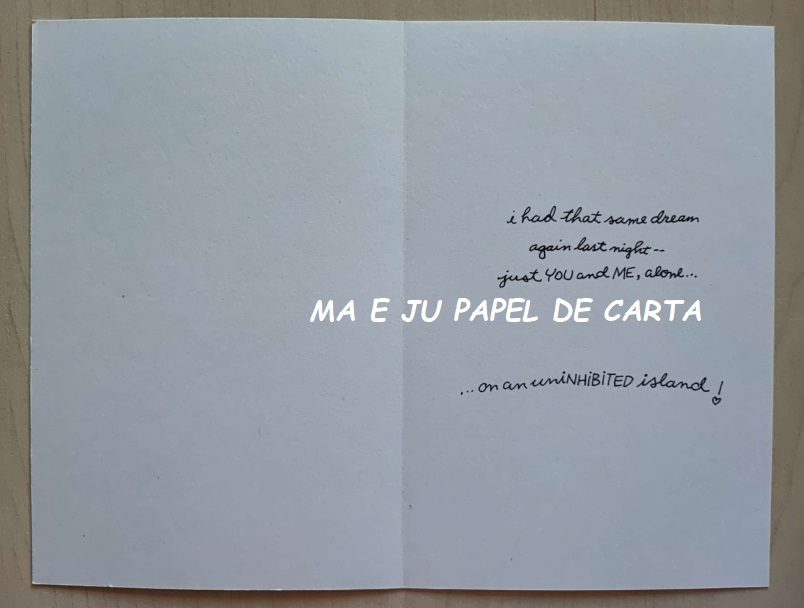 i had that same dream
again last night--
just YOU and ME, alone...
MA E JU PAPEL DE CARTA
...on an uniNHiBiTED island!